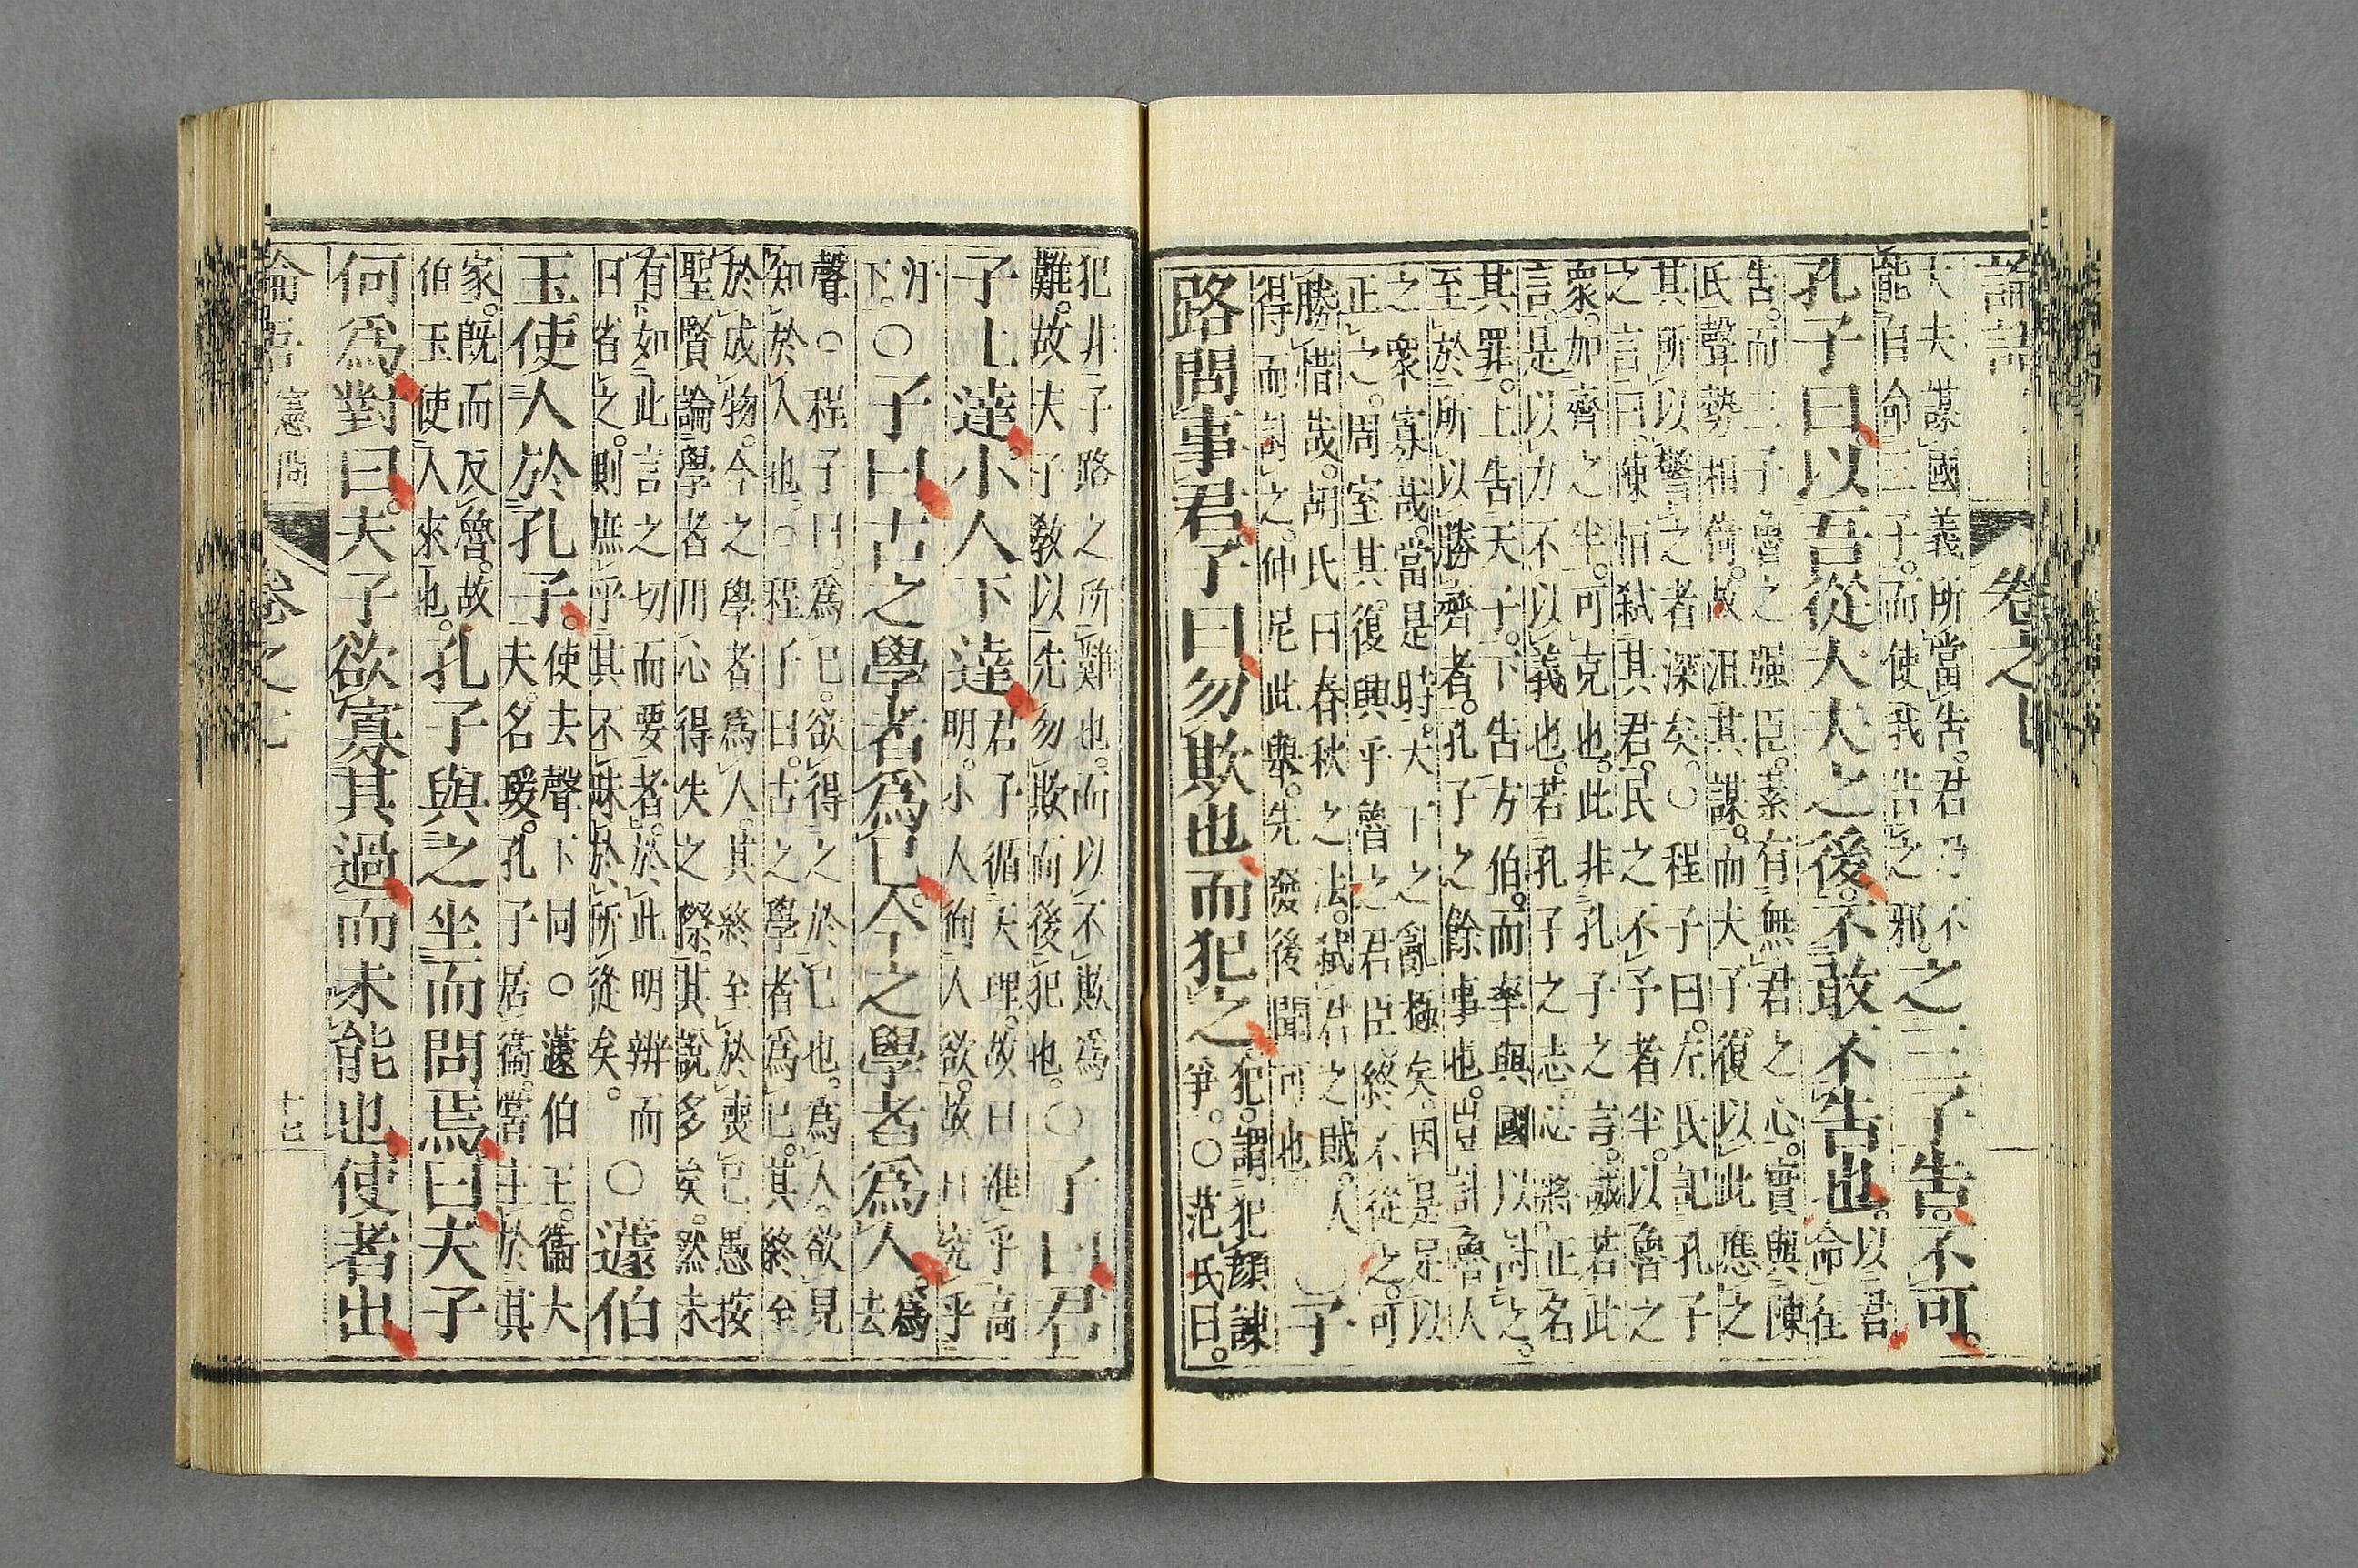 論語 卷之七
大夫謀國義所當告君乃不
能自命三子而使我告之邪
之三子告不可
孔子曰以吾從大夫之後不敢不告也
以君
命往
告而三子魯之强臣素有無君之心實與陳
氏聲勢相倚故沮其謀而夫子復以此應之
其所以警之者深矣○程子曰左氏記孔子
之言曰陳恒弑其君民之不予者半以魯之
衆加齊之半可克也此非孔子之言誠若此
言是以力不以義也若孔子之志必將正名
其罪上告天子下告方伯而率與國以討之
至於所以勝齊者孔子之餘事也豈計魯人
之衆寡哉當是時天下之亂極矣因是足以
正之周室其復興乎魯之君臣終不從之可
勝惜哉胡氏曰春秋之法弑君之賊人
得而討之仲尼此舉先發後聞可也
○子
路問事君子曰勿欺也而犯之
犯謂犯顔諫
爭○范氏曰
犯非子路之所難也而以不欺爲
難故夫子敎以先勿欺而後犯也
○子曰君
子上達小人下達
君子循天理故日進乎高
明小人徇人欲故日究乎
汙
下
○子曰古之學者爲己今之學者爲人
爲
去
聲○程子曰爲己欲得之於己也爲人欲見
知於人也○程子曰古之學者爲己其終至
於成物今之學者爲人其終至於喪己愚按
聖賢論學者用心得失之際其說多矣然未
有如此言之切而要者於此明辨而
日省之則庶乎其不昧於所從矣
○蘧伯
玉使人於孔子
使去聲下同○蘧伯玉衞大
夫名瑗孔子居衞嘗主於其
家旣而反魯故
伯玉使人來也
孔子與之坐而問焉曰夫子
何爲對曰夫子欲寡其過而未能也使者出
論語 憲問 卷之七 十七